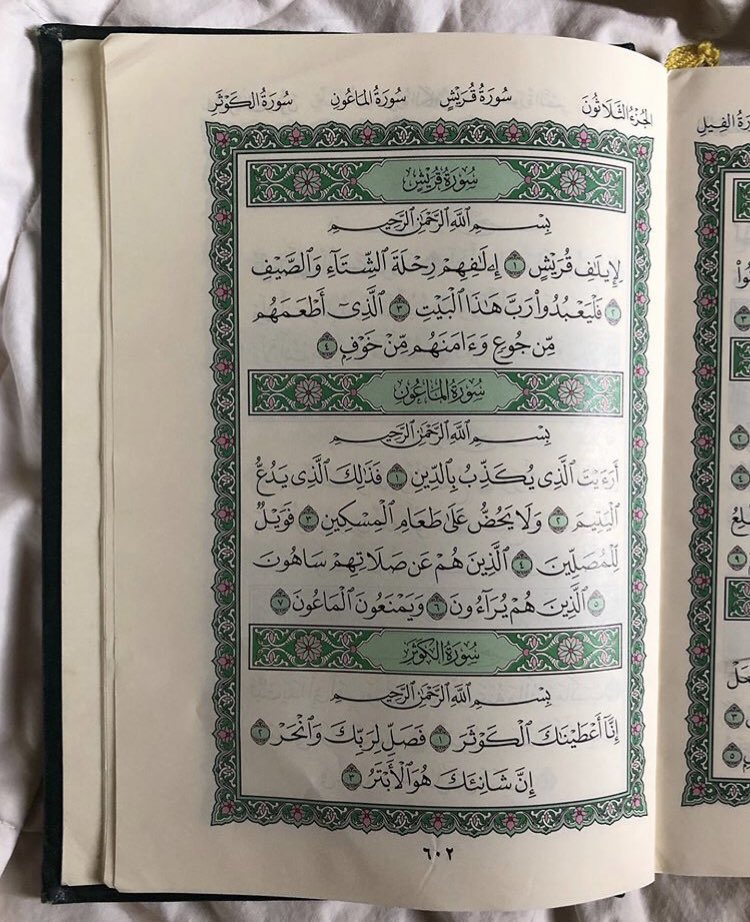 الجُزءُ الثَّلَاثُونَ سُورَةُ قُرَيْشٍ سُورَةُ المَاعُونِ سُورَةُ الكَوْثَرِ
سُورَةُ قُرَيْشٍ
بِسْمِ ٱللَّهِ ٱلرَّحْمَٰنِ ٱلرَّحِيمِ
لِإِيلَٰفِ قُرَيْشٍ ١ إِۦلَٰفِهِمْ رِحْلَةَ ٱلشِّتَآءِ وَٱلصَّيْفِ
٢ فَلْيَعْبُدُوا۟ رَبَّ هَٰذَا ٱلْبَيْتِ ٣ ٱلَّذِىٓ أَطْعَمَهُم
مِّن جُوعٍ وَءَامَنَهُم مِّنْ خَوْفٍۭ ٤
سُورَةُ المَاعُونِ
بِسْمِ ٱللَّهِ ٱلرَّحْمَٰنِ ٱلرَّحِيمِ
أَرَءَيْتَ ٱلَّذِى يُكَذِّبُ بِٱلدِّينِ ١ فَذَٰلِكَ ٱلَّذِى يَدُعُّ
ٱلْيَتِيمَ ٢ وَلَا يَحُضُّ عَلَىٰ طَعَامِ ٱلْمِسْكِينِ ٣ فَوَيْلٌ
لِّلْمُصَلِّينَ ٤ ٱلَّذِينَ هُمْ عَن صَلَاتِهِمْ سَاهُونَ
٥ ٱلَّذِينَ هُمْ يُرَآءُونَ ٦ وَيَمْنَعُونَ ٱلْمَاعُونَ ٧
سُورَةُ الكَوْثَرِ
بِسْمِ ٱللَّهِ ٱلرَّحْمَٰنِ ٱلرَّحِيمِ
إِنَّآ أَعْطَيْنَٰكَ ٱلْكَوْثَرَ ١ فَصَلِّ لِرَبِّكَ وَٱنْحَرْ ٢
إِنَّ شَانِئَكَ هُوَ ٱلْأَبْتَرُ ٣
٦٠٢